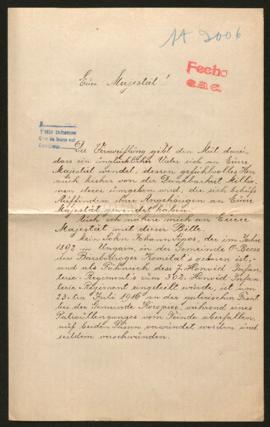 A A 2006
Fecho
Eure Majestät!
Die Verzweiflung gibt den Mut dazu,
dass ein unglücklicher Vater sich an Eure
Majestät wendet, dessen gefühlvolles Herz
auch bisher von der Dankbarkeit Millio-
nen derer umgeben wird, die sich behufs
Auffinden ihrer Angehörigen an Eure
Majestät gewendet haben.
Auch ich nähere mich an Eure
Majestät mit dieser Bitte.
Mein Sohn Johann, der im Jahre
1892 in Ungarn, in der Gemeinde
des Bács-Bodroger Komitat's geboren ist,
und als Fähnrich des 7. Honvéd Infan-
terie-Regiment's zum 303. Honvéd Infan-
terie-Regiment eingeteilt wurde, ist am
23-ten Juli 1916 an der galizischen Front
bei der Gemeinde während eines
Patrouillenganges vom Feinde überfallen,
auf beiden verwundet worden und
seitdem verschwunden.